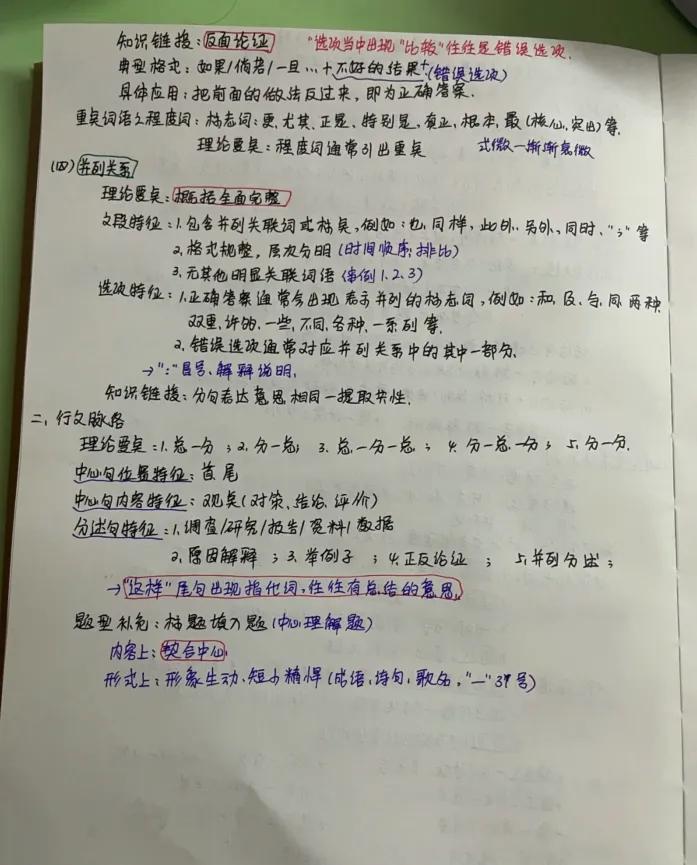 知识链接:反面论证 "选项当中出现"比较"往往是错误选项.
典型格式:如果/倘若/一旦…+不好的结果+(错误选项)
具体应用:把前面的做法反过来,即为正确答案.
重点词语之程度词:标志词:更.尤其.正是.特别是.真正.根本.最(核心,突出)等.
理论要点:程度词通常引出重点 式微—渐渐衰微
(四)并列关系
理论要点:概括全面完整
文段特征:1.包含并列关联词或标点,例如:也.同样,此外.另外,同时、";"等
2.格式规整,层次分明(时间顺序;排比)
3.无其他明显关联词语(案例1.2.3)
选项特征:1.正确答案通常会出现表示并列的标志词,例如:和.及.与.同.两种.
双重.许多.一些.不同.各种.一系列等.
2.错误选项通常对应并列关系中的其中一部分.
→":"冒号、解释说明.
知识链接:分句表达意思相同—提取共性.
二、行文脉络
理论要点:1.总—分;2.分—总;3.总—分—总;4.分—总—分;5.分—分.
中心句位置特征:首.尾
中心句内容特征:观点(对策、结论.评价)
分述句特征:1.调查/研究/报告/资料/数据
2.原因解释;3.举例子;4.正反论证;5.并列分述;
→"这样"尾句出现指代词,往往有总结的意思.
题型补充:标题填入题(中心理解题)
内容上:契合中心.
形式上:形象生动.短小精悍(成语,诗句,歌名,"—"引号)